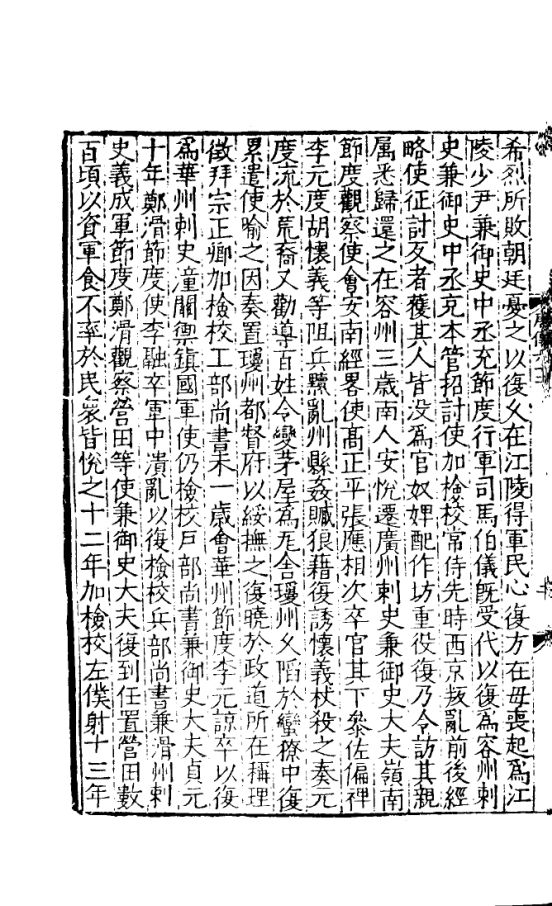 希烈所敗朝廷憂之以復久在江陵得軍民心復方在毋喪起爲江
陵少尹兼御史中丞充節度行軍司馬伯儀旣受代以復爲容州刺
史兼御史中丞充本管招討使加檢校常侍先時西京叛亂前後經
略使征討反者獲其人皆没爲官奴婢配作坊重役復乃令訪其親
属悉歸還之在容州三歳南人安悅遷廣州刺史兼御史大夫嶺南
節度觀察使會安南經畧使髙正平張應相次卒官其下叅佐偏裨
李元度胡懷義等阻兵黷亂州縣姦贓狼藉復誘懷義杖殺之奏元
度流於荒裔又勸導百姓令變茅屋為瓦舎瓊州乆陷於蠻獠中復
累遣使喻之因奏置瓊州都督府以綏撫之復曉於政道所在稱理
徵拜宗正卿加檢校工部尚書未一歳會華州節度李元諒卒以復
爲華州刺史潼關禦鎮國軍使仍檢校戸部尚書兼御史大夫貞元
十年鄭滑節度使李融卒軍中潰亂以復檢校兵部尚書兼滑州刺
史義成軍節度鄭滑觀察營田等使兼御史大夫復到任置營田數
百頃以資軍食不率於民衆皆悅之十二年加檢校左僕射十三年